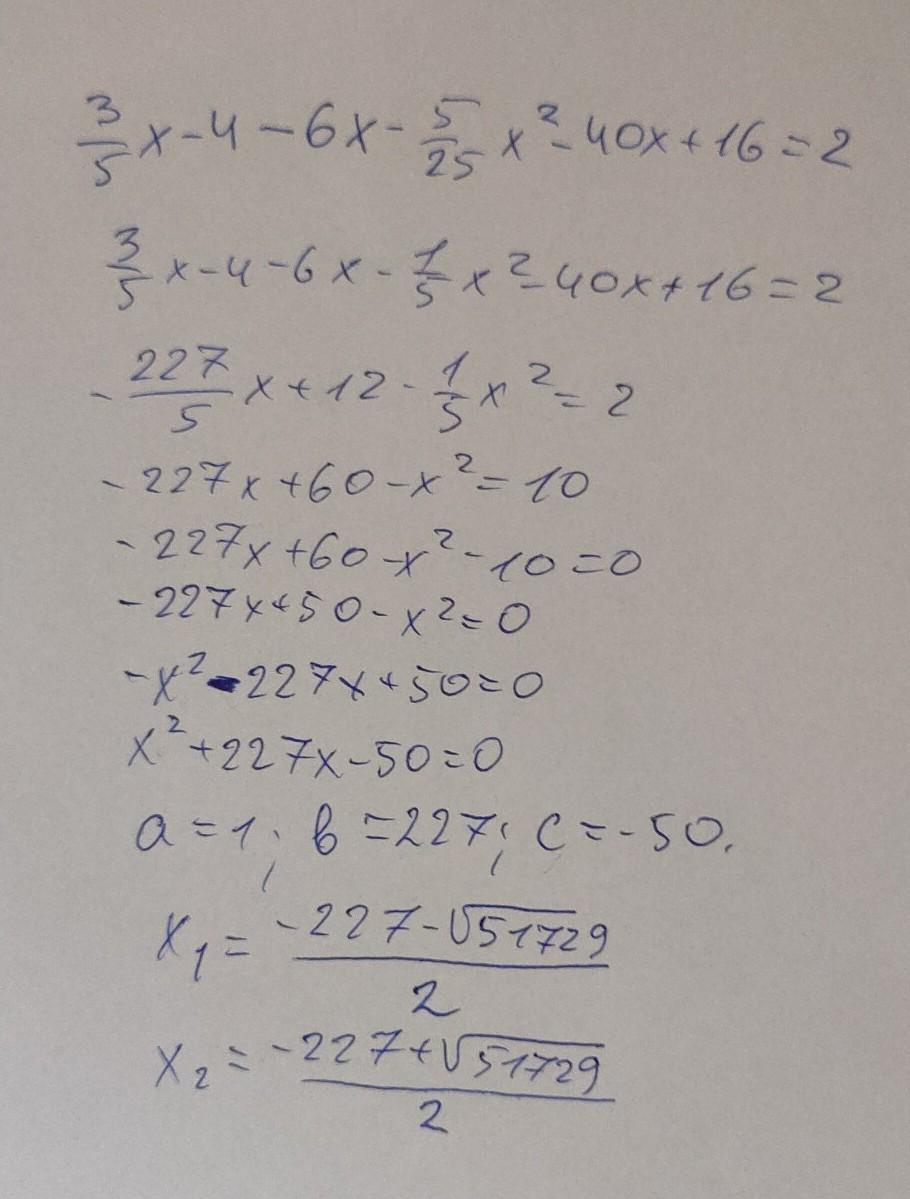 3/5 x - 4 - 6x - 5/25 x² - 40x + 16 = 2
3/5 x - 4 - 6x - 1/5 x² - 40x + 16 = 2
- 227/5 x + 12 - 1/5 x² = 2
- 227x + 60 - x² = 10
- 227x + 60 - x² - 10 = 0
- 227x + 50 - x² = 0
- x² - 227x + 50 = 0
x² + 227x - 50 = 0
a = 1; b = 227; c = -50.
x₁ = (-227 - √51729)/2
x₂ = (-227 + √51729)/2